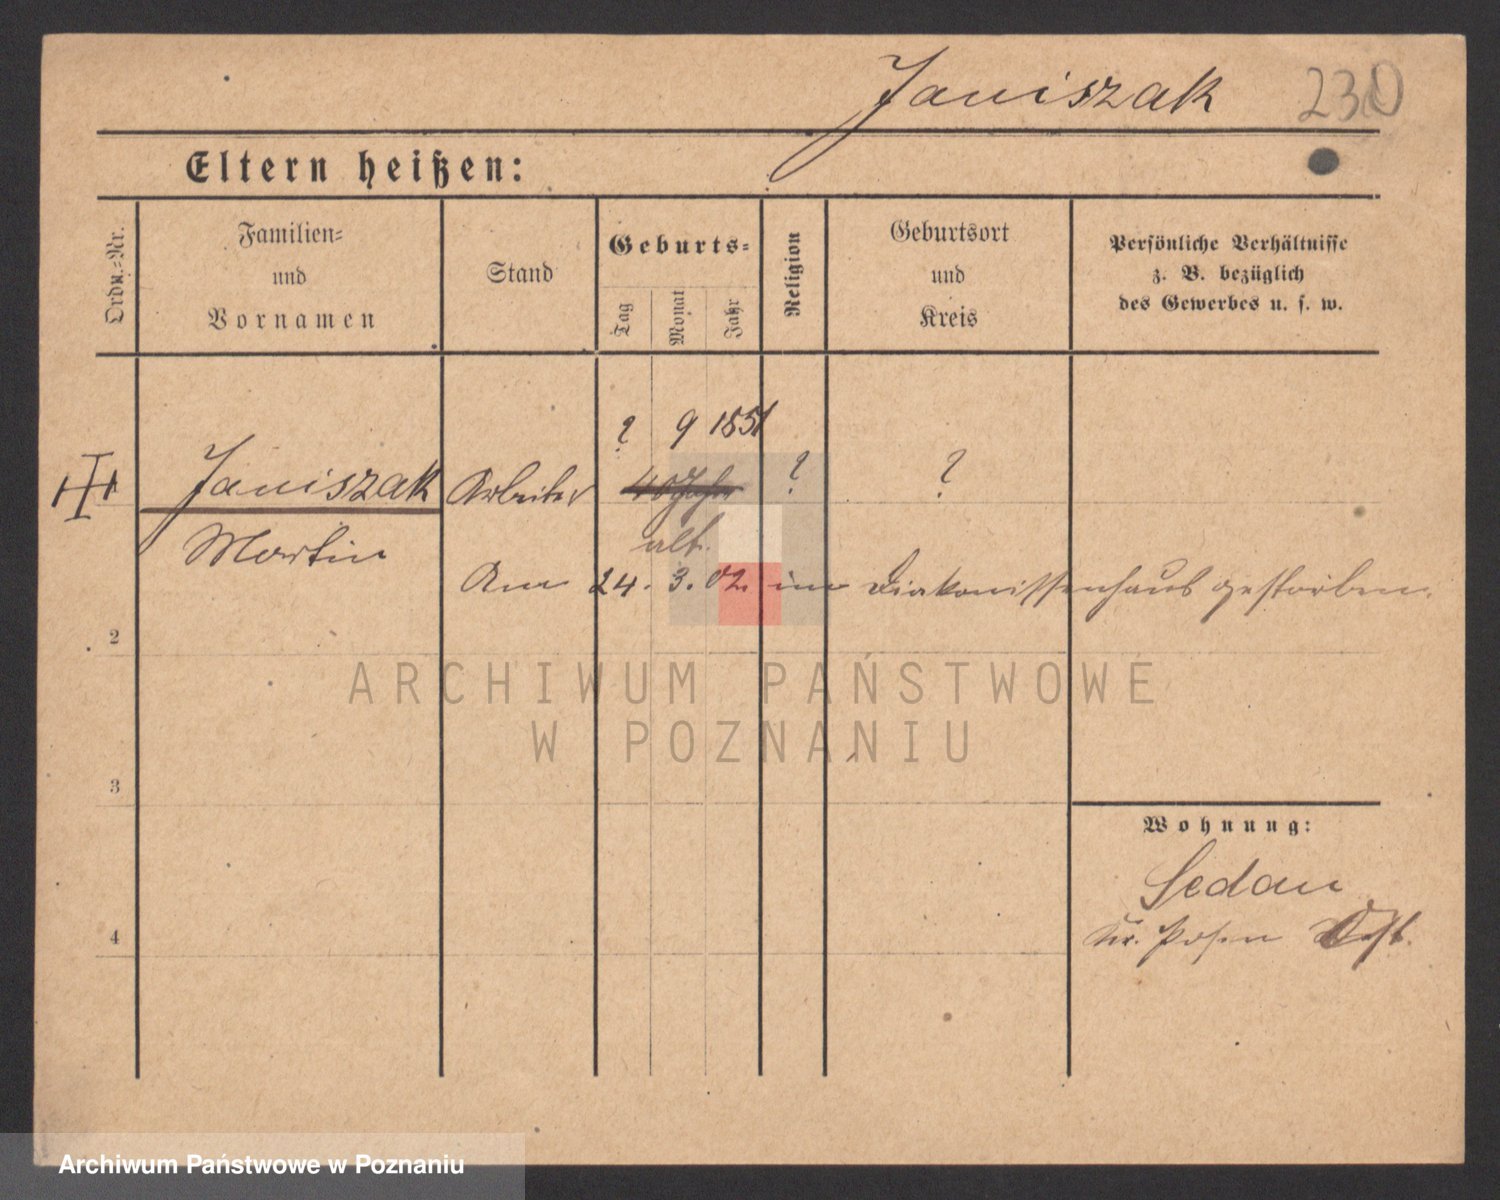 Janiszak 230
Eltern heißen:
Ordn.-Nr.
Familien-
und
Vornamen
Stand
Geburts-
Tag
Monat
Jahr
Religion
Geburtsort
und
Kreis
Persönliche Verhältnisse
z. B. bezüglich
des Gewerbes u. s. w.
? 9 1851
Janiszak Arbeiter 40 Jahre ? ?
Martin alt.
Am 24. 3. 02. im Diakonissenhaus gestorben.
2
ARCHIWUM PAŃSTWOWE
W POZNANIU
3
Wohnung:
Sedan
4
Kr. Posen Ost.
Archiwum Państwowe w Poznaniu